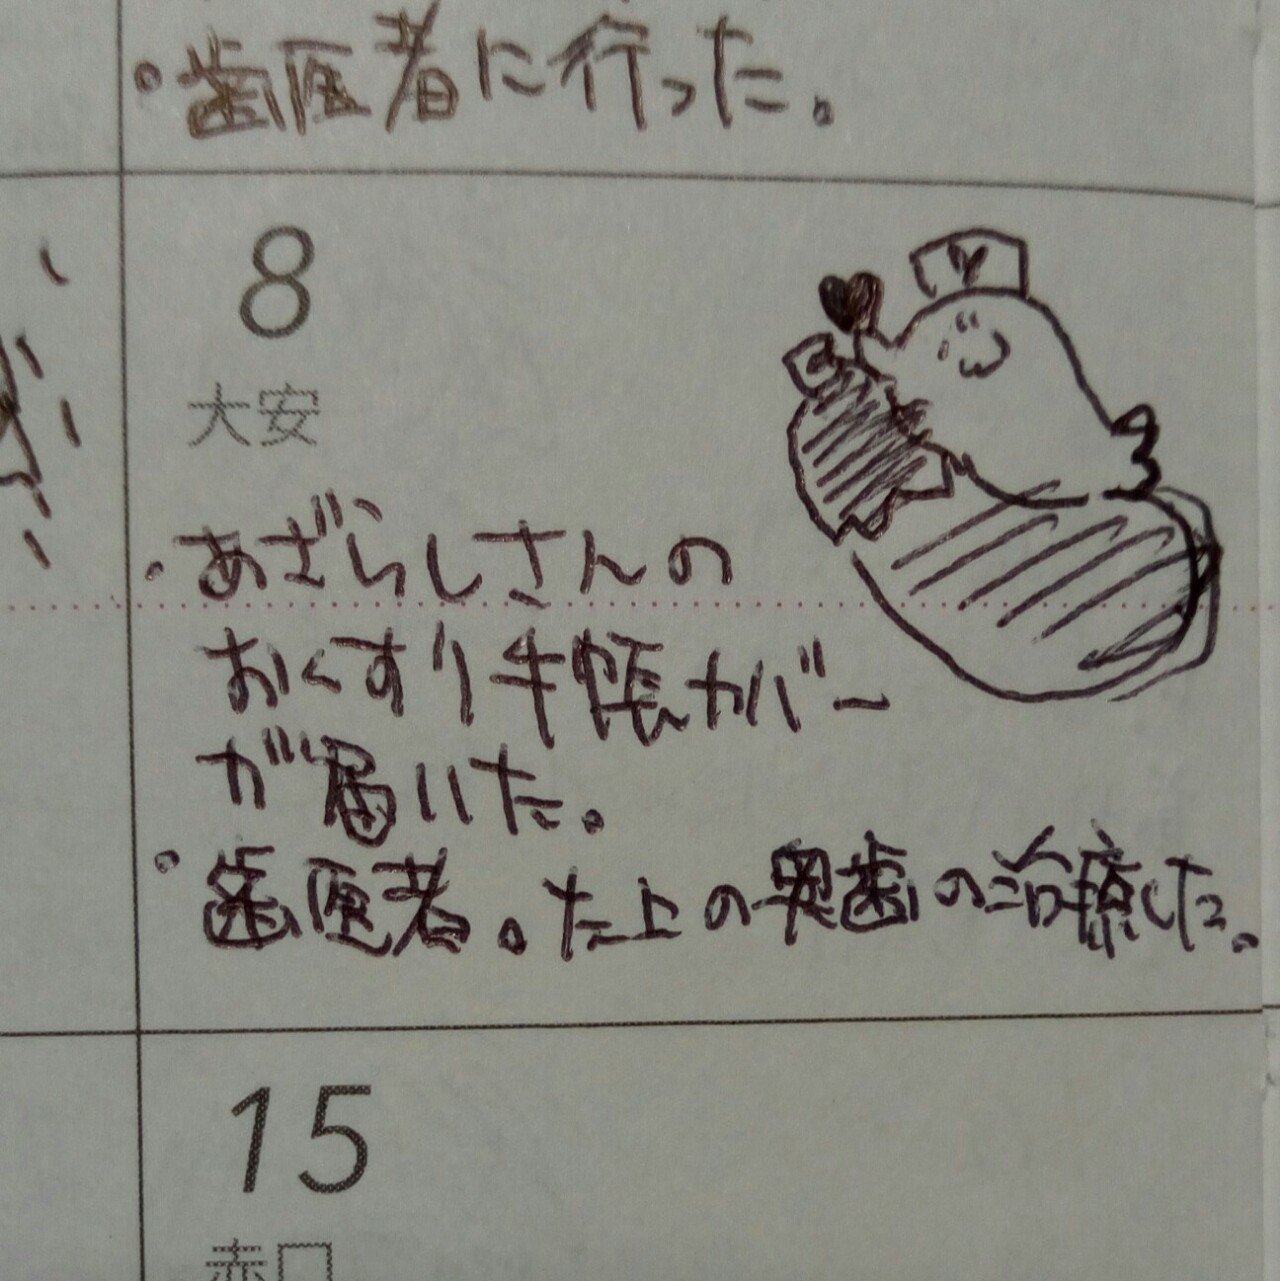 ・歯医者に行った。
8
大安
・あざらしさんの
おくすり手帳カバー
が届いた。
・歯医者。た上の奥歯の治療した。
15
赤口